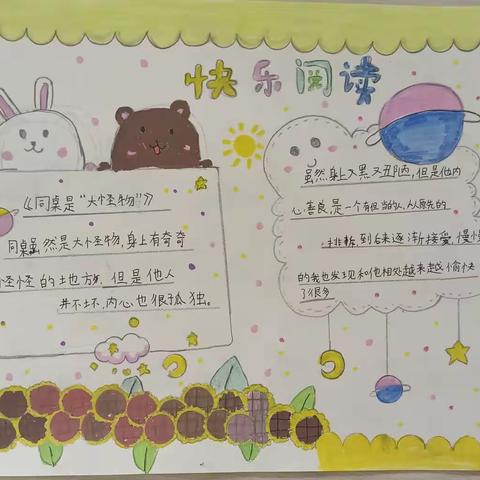 快乐阅读
《同桌是"大怪物"》
同桌虽然是大怪物,身上有奇奇
怪怪的地方,但是他人
并不坏,内心也很孤独。
虽然身上又黑又丑陋,但是他内
心善良,是一个有担当的人,从原先的
排斥,到后来逐渐接受,慢慢
的我也发现和他相处越来越愉快
了很多